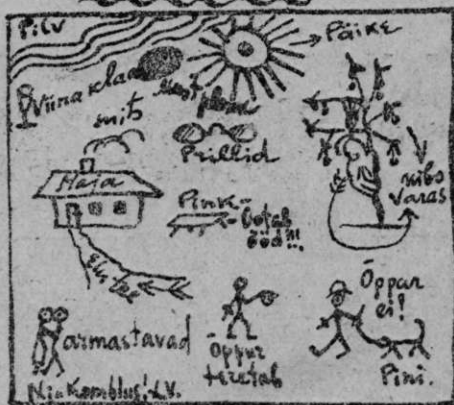 Pilv
Päike
Viinaklaas
must plekk
mits
Prillid
Maja
Pink-
Ootab
ööd!!!
nibo
Varas
Elu tee
armastavad
Õppur
teretab
Õppar
ei!
Pini.
Nii Komblus! L.V.